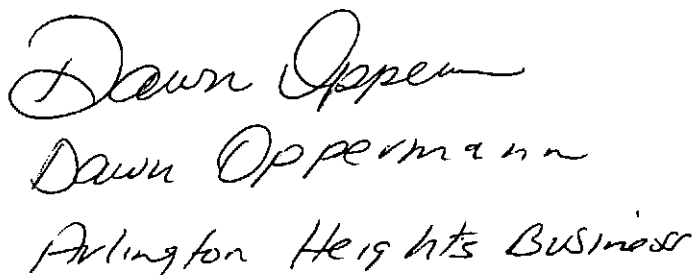 Dawn Opperm
Dawn Oppermann
Arlington Heights Business